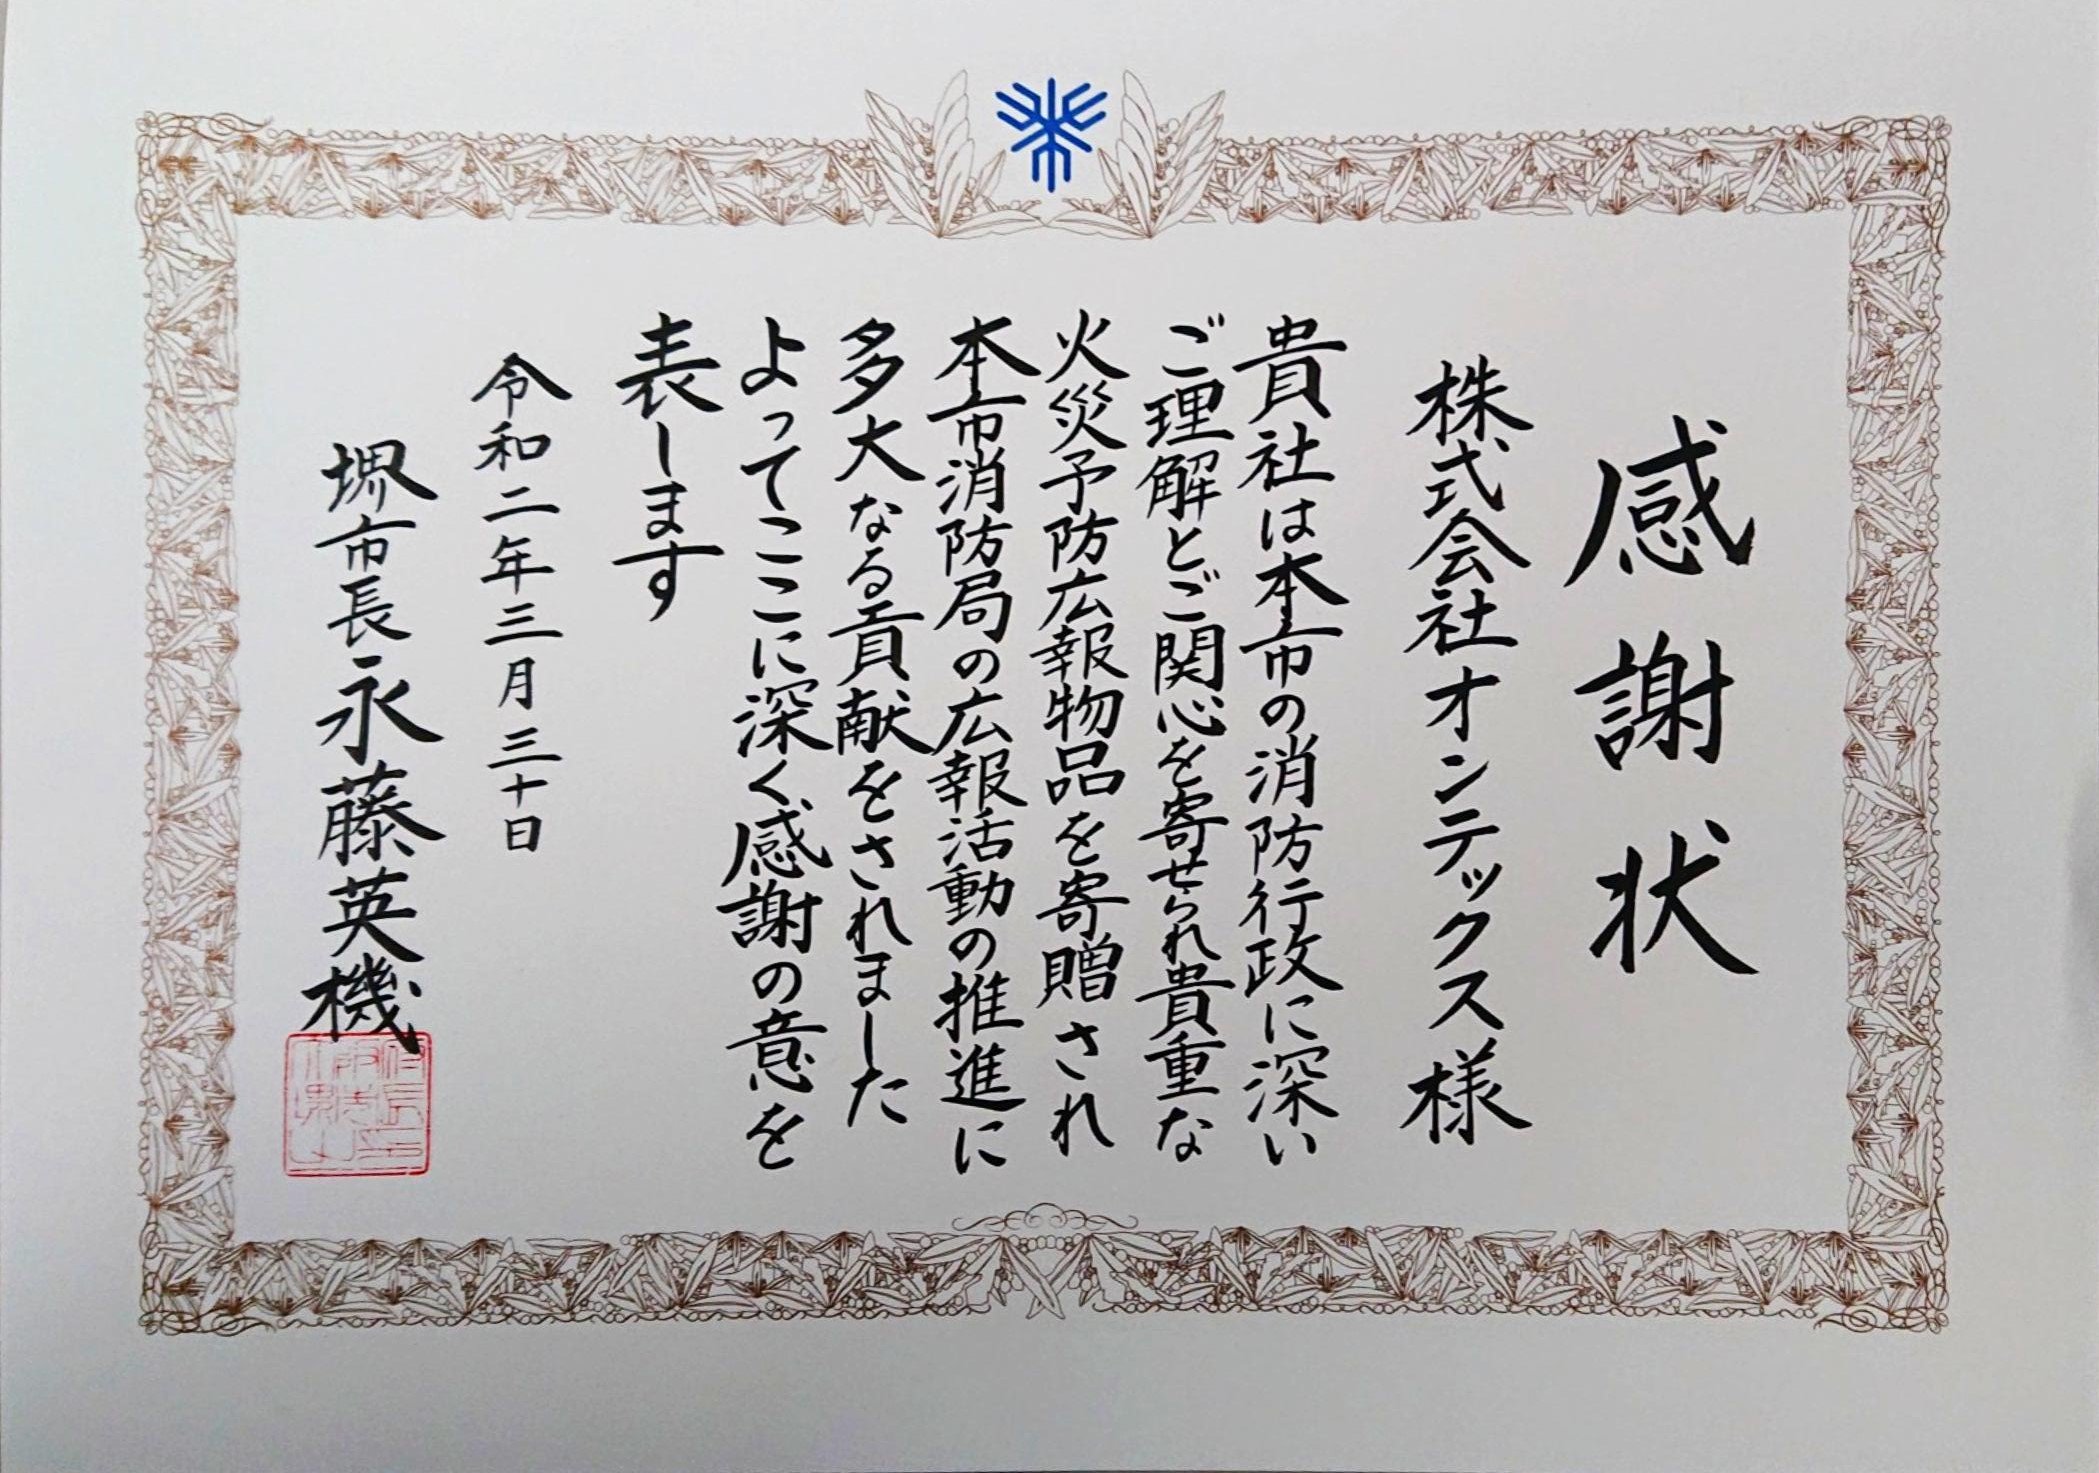 感謝状
株式会社オンテックス様
貴社は本市の消防行政に深い
ご理解とご関心を寄せられ貴重な
火災予防広報物品を寄贈され
本市消防局の広報活動の推進に
多大なる貢献をされました
よってここに深く感謝の意を
表します
令和二年三月三十日
堺市長永藤英機